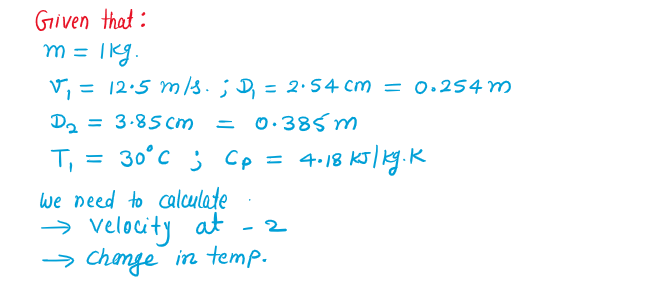 Given that :
m = 1 kg.
V₁ = 12.5 m/s. ; D₁ = 2.54 cm = 0.254 m
D₂ = 3.85 cm = 0.385 m
T₁ = 30°C ; Cp = 4.18 kJ/kg.K
We need to calculate
→ Velocity at - 2
→ change in temp.